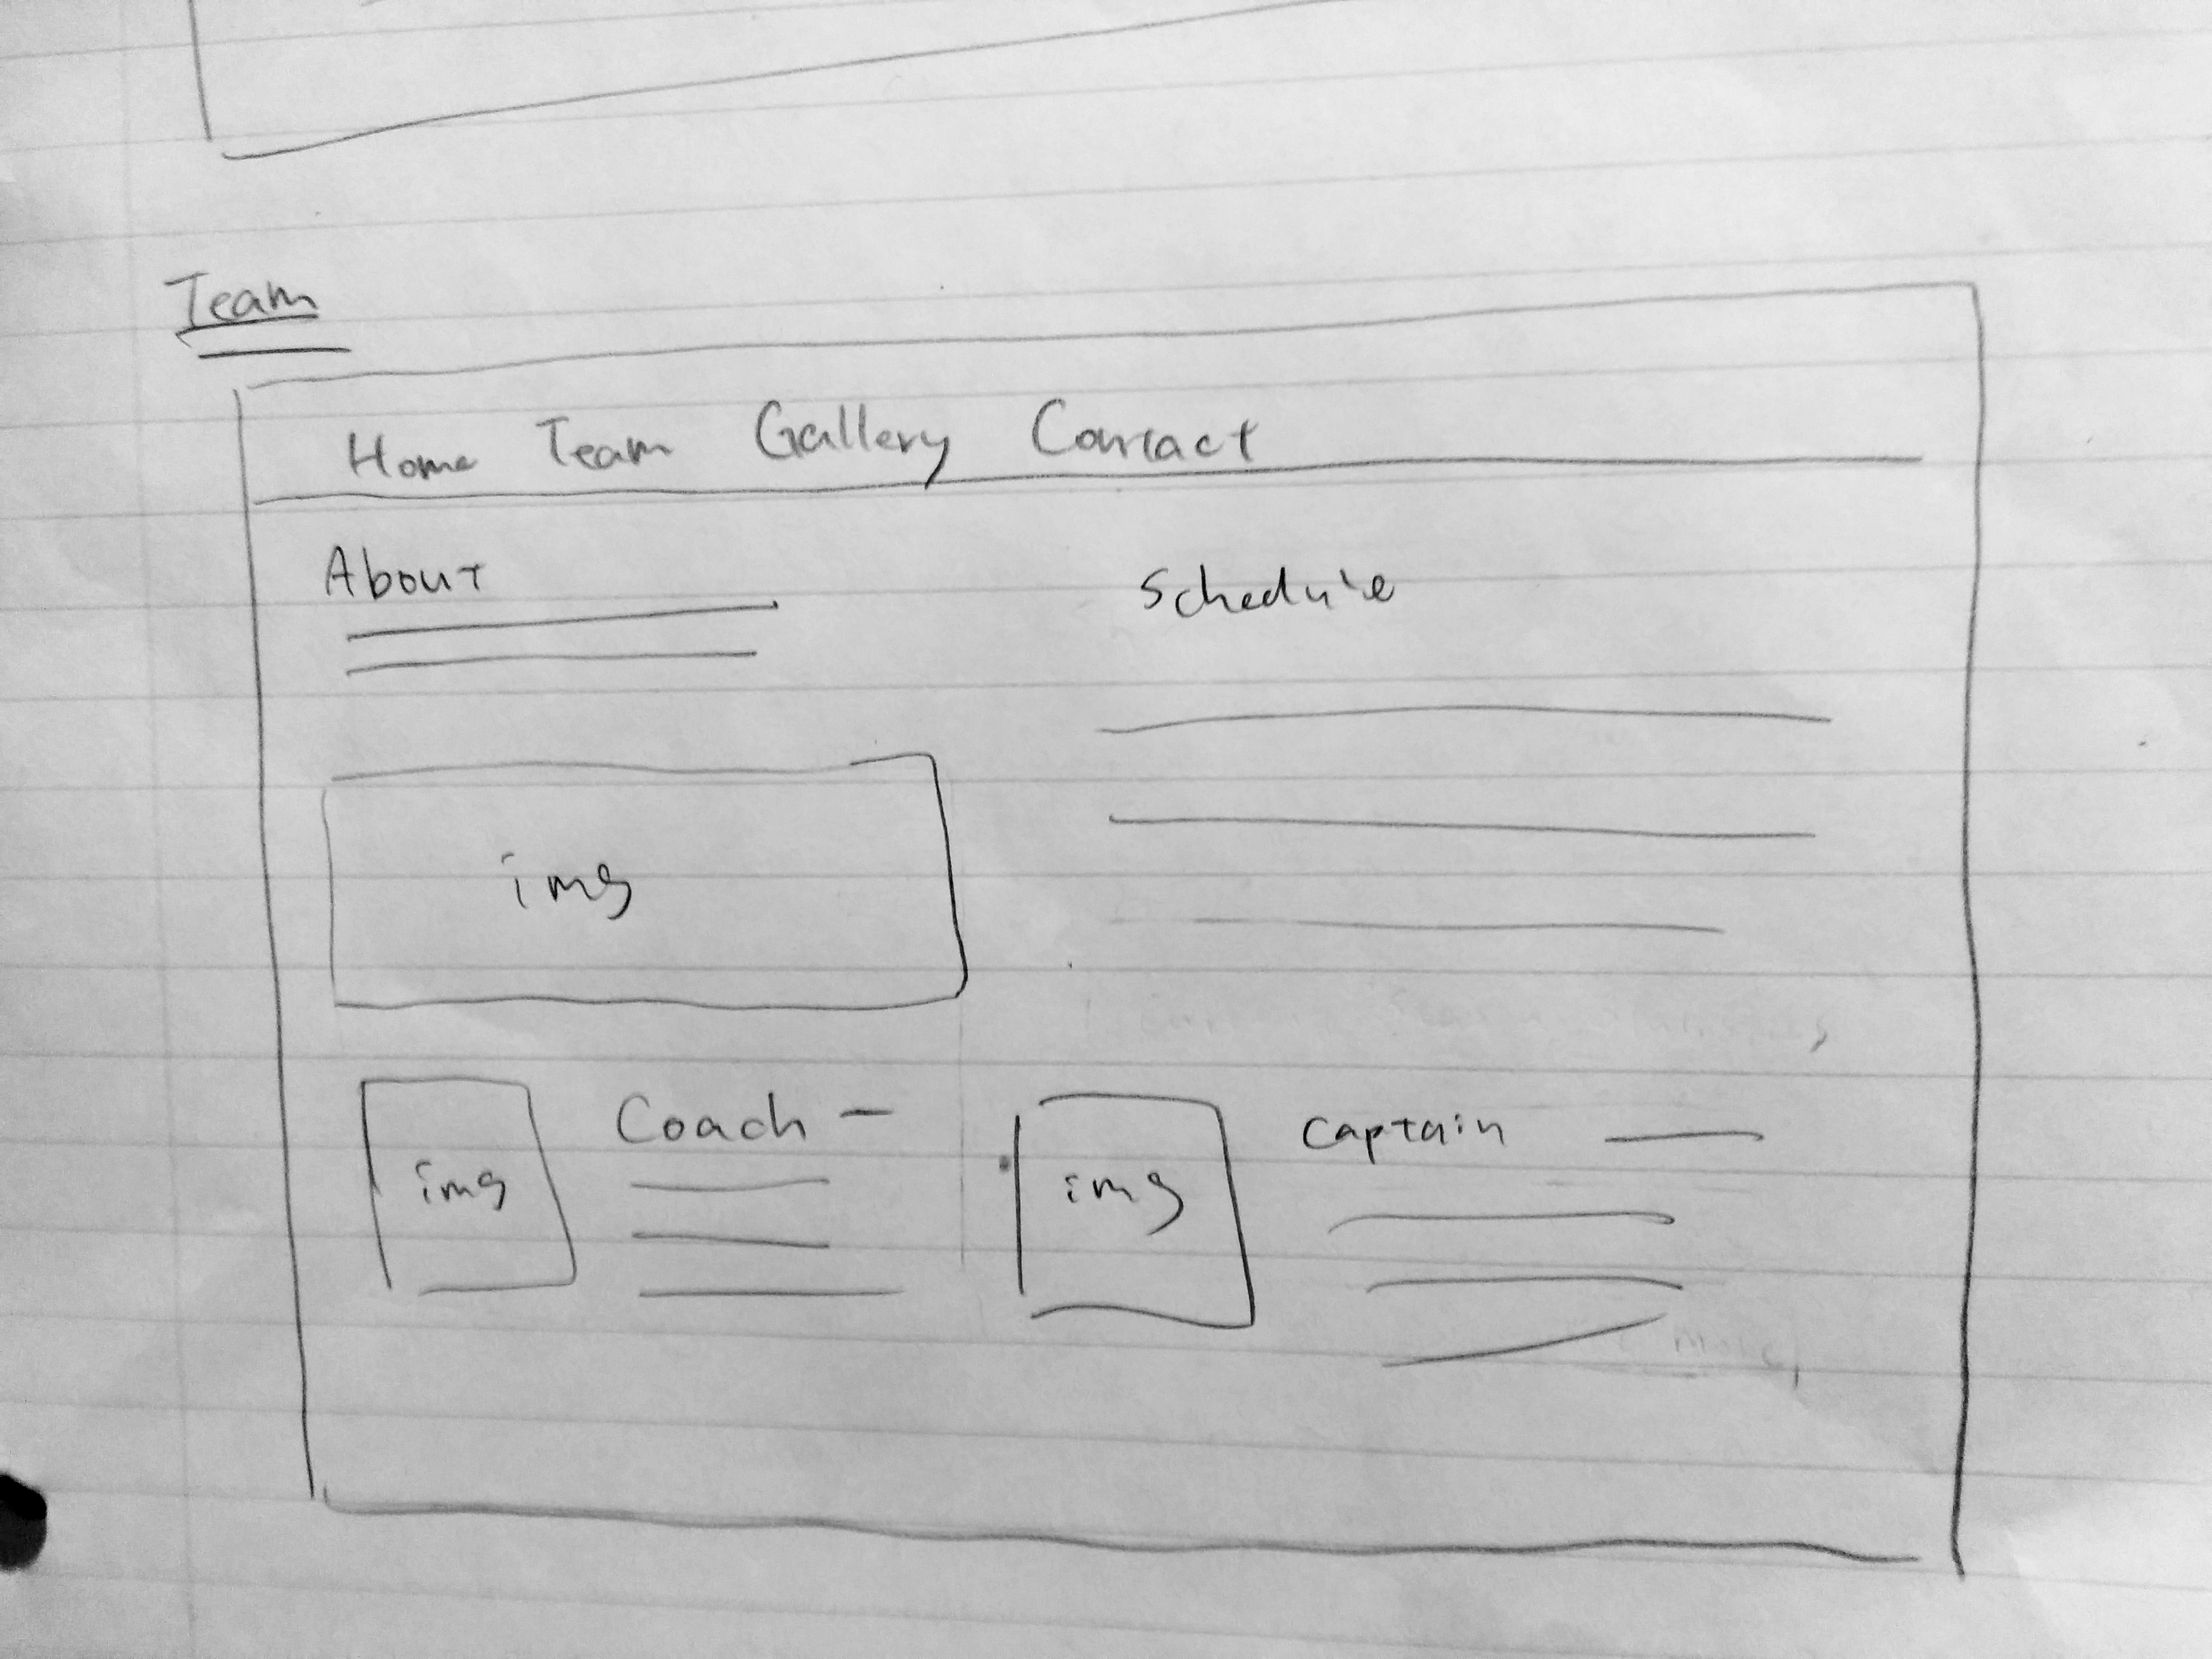 Team
Home Team Gallery Contact
About
Schedule
img
Coach –
img
img
Captain